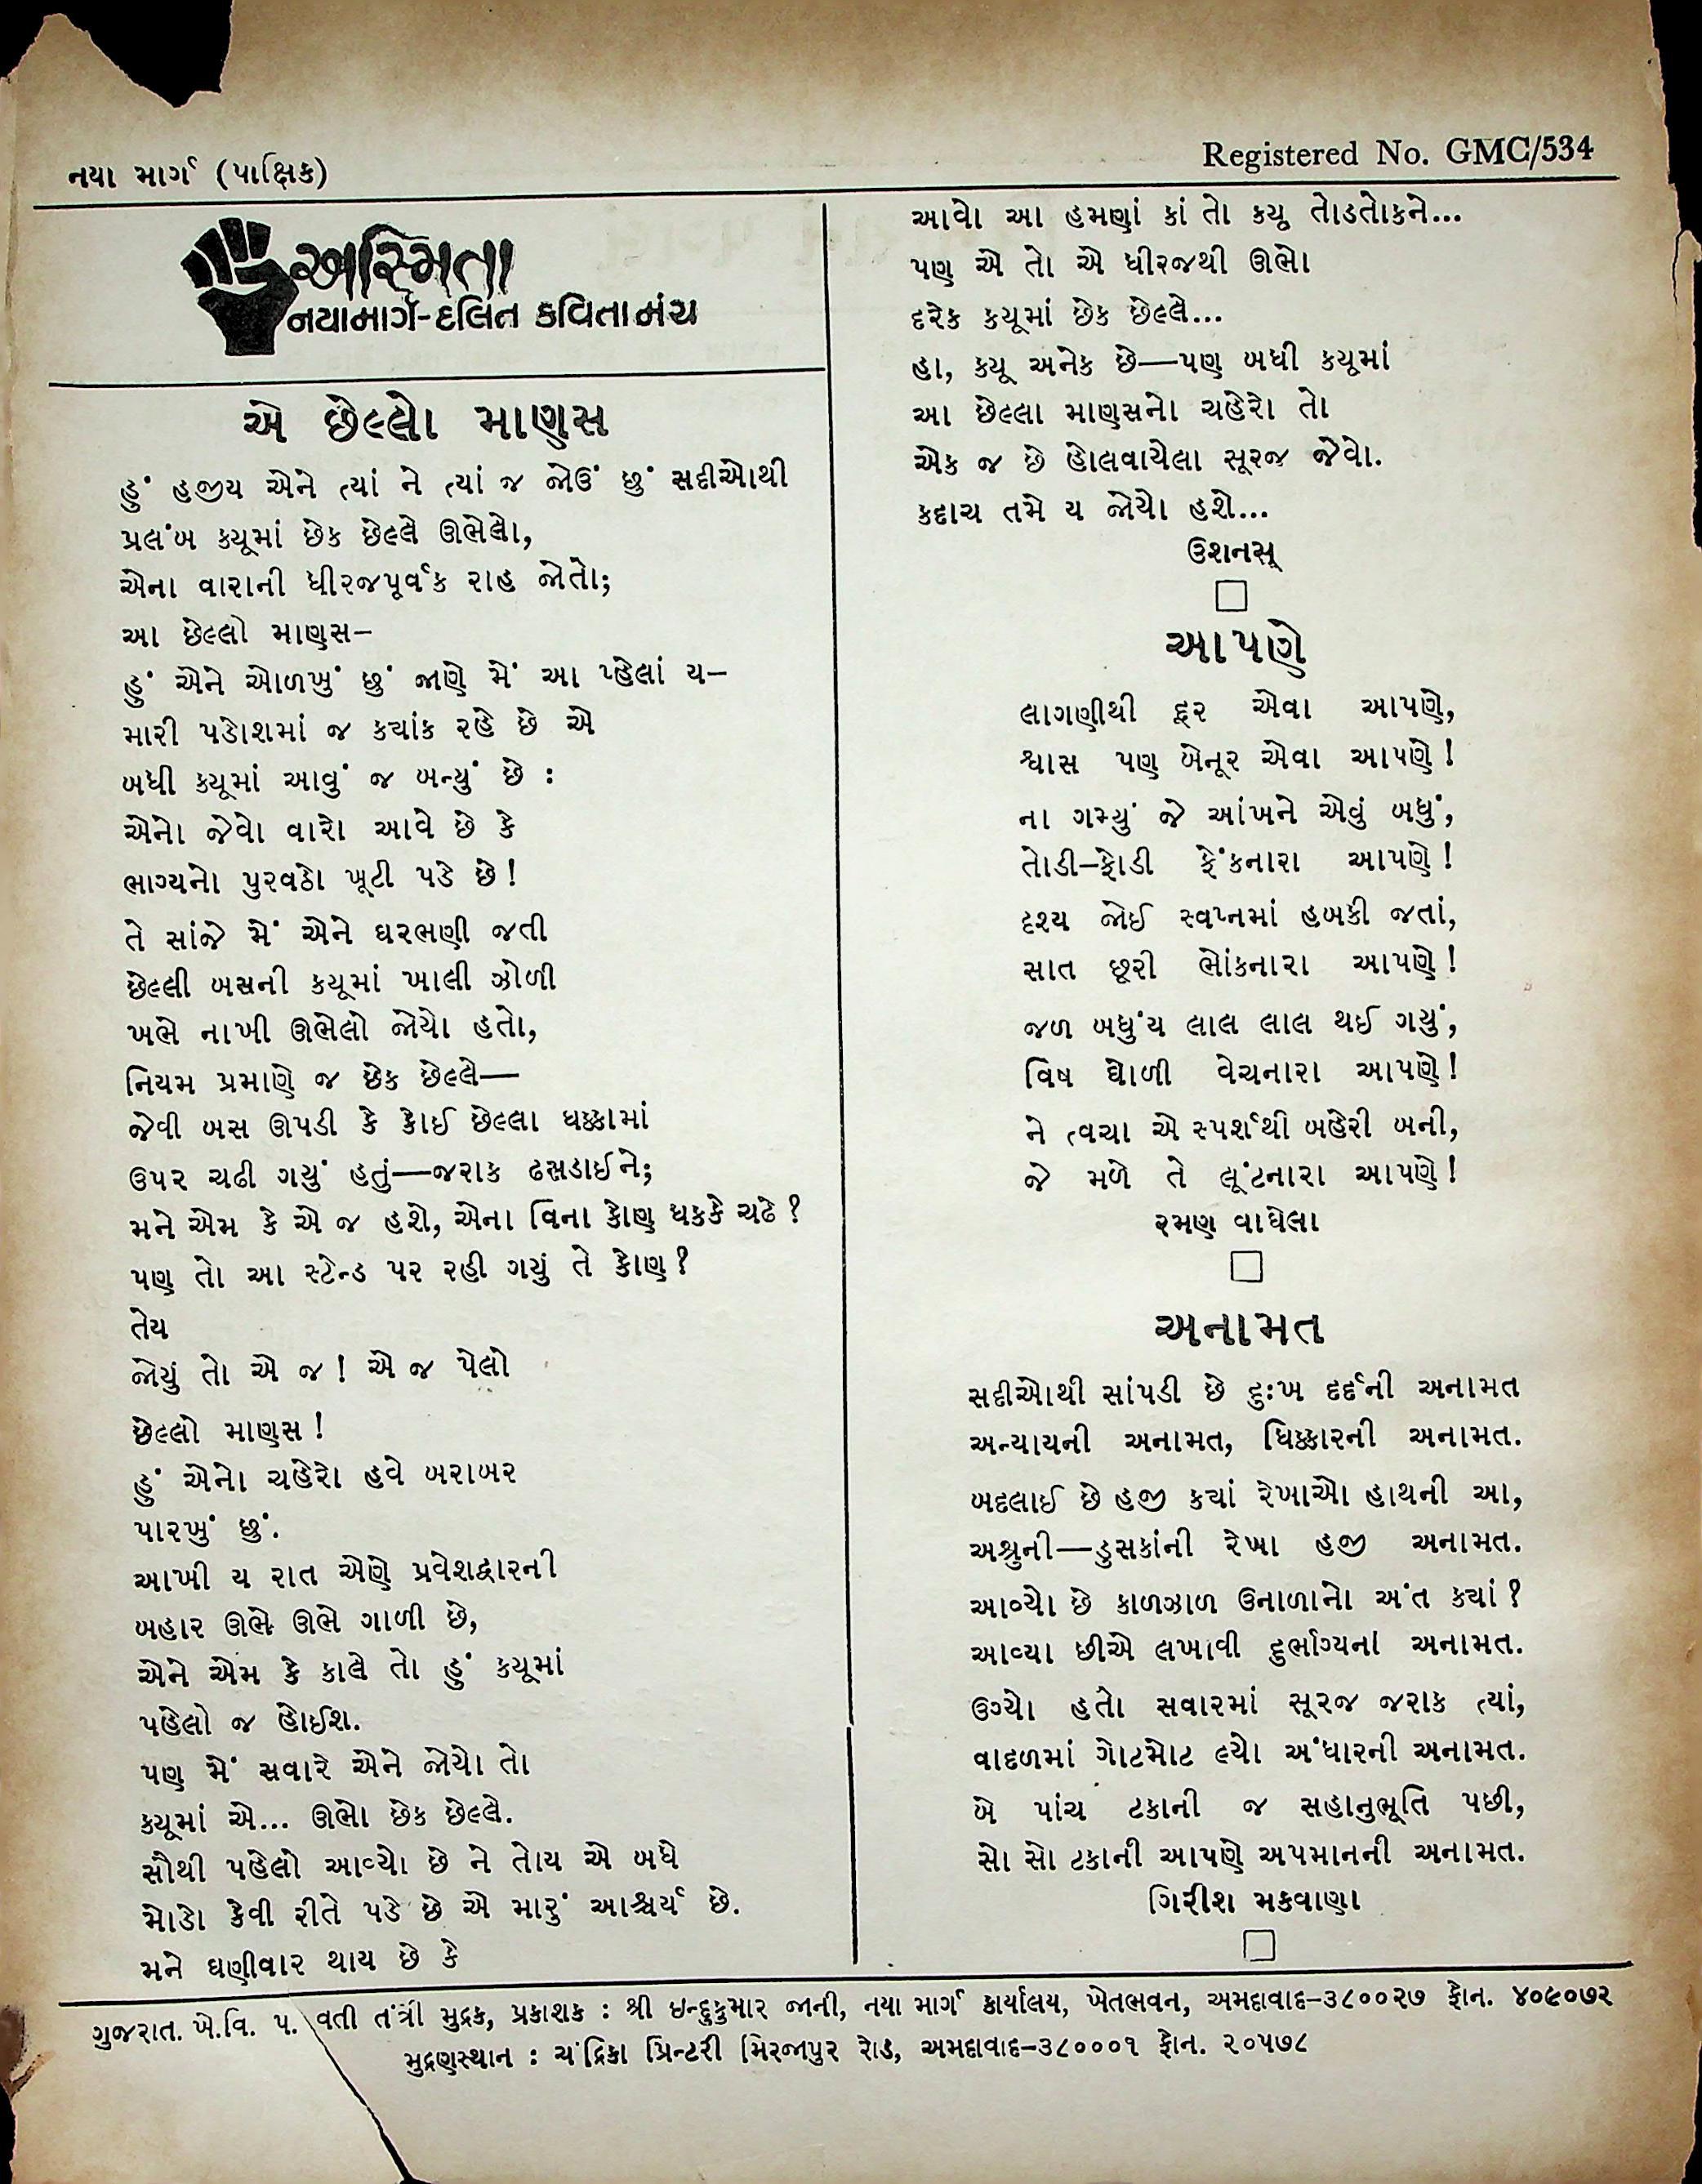 નયા માર્ગ (પાક્ષિક)
Registered No. GMC/534
અસ્મિતા
નયામાર્ગ-દલિત કવિતામંચ
એ છેલ્લો માણસ
હું હજીય એને ત્યાં ને ત્યાં જ જોઉં છું સદીઓથી
પ્રલંબ ક્યૂમાં છેક છેલ્લે ઊભેલો,
એના વારાની ધીરજપૂર્વક રાહ જોતો;
આ છેલ્લો માણસ–
હું એને ઓળખું છું જાણે મેં આ પ્હેલાં ય–
મારી પડોશમાં જ ક્યાંક રહે છે એ
બધી ક્યૂમાં આવું જ બન્યું છે :
એનો જેવો વારો આવે છે કે
ભાગ્યનો પુરવઠો ખૂટી પડે છે!
તે સાંજે મેં એને ઘરભણી જતી
છેલ્લી બસની ક્યૂમાં ખાલી ઝોળી
ખભે નાખી ઊભેલો જોયો હતો,
નિયમ પ્રમાણે જ છેક છેલ્લે—
જેવી બસ ઊપડી કે કોઈ છેલ્લા ધક્કામાં
ઉપર ચઢી ગયું હતું—જરાક ઢસડાઈને;
મને એમ કે એ જ હશે, એના વિના કોણ ધકકે ચઢે?
પણ તો આ સ્ટેન્ડ પર રહી ગયું તે કોણ?
તેય
જોયું તો એ જ! એ જ પેલો
છેલ્લો માણસ!
હું એનો ચહેરો હવે બરાબર
પારખું છું.
આખી ય રાત એણે પ્રવેશદ્વારની
બહાર ઊભે ઊભે ગાળી છે,
એને એમ કે કાલે તો હું ક્યૂમાં
પહેલો જ હોઈશ.
પણ મેં સવારે એને જોયો તો
ક્યૂમાં એ... ઊભો છેક છેલ્લે.
સૌથી પહેલો આવ્યો છે ને તોય એ બધે
મોડો કેવી રીતે પડે છે એ મારું આશ્ચર્ય છે.
મને ઘણીવાર થાય છે કે
આવો આ હમણાં કાં તો ક્યૂ તોડતોકને...
પણ એ તો એ ધીરજથી ઊભો
દરેક ક્યૂમાં છેક છેલ્લે...
હા, ક્યૂ અનેક છે—પણ બધી ક્યૂમાં
આ છેલ્લા માણસનો ચહેરો તો
એક જ છે હોલવાયેલા સૂરજ જેવો.
કદાચ તમે ય જોયો હશે...
ઉશનસ્
આપણે
લાગણીથી દૂર એવા આપણે,
શ્વાસ પણ બેનૂર એવા આપણે!
ના ગમ્યું જે આંખને એવું બધું,
તોડી–ફોડી ફેંકનારા આપણે!
દૃશ્ય જોઈ સ્વપ્નમાં હબકી જતાં,
સાત છૂરી ભોંકનારા આપણે!
જળ બધું'ય લાલ લાલ થઈ ગયું,
વિષ ઘોળી વેચનારા આપણે!
ને ત્વચા એ સ્પર્શથી બહેરી બની,
જે મળે તે લૂંટનારા આપણે!
રમણ વાઘેલા
અનામત
સદીઓથી સાંપડી છે દુઃખ દર્દની અનામત
અન્યાયની અનામત, ધિક્કારની અનામત.
બદલાઈ છે હજી ક્યાં રેખાઓ હાથની આ,
અશ્રુની—ડુસકાંની રેખા હજી અનામત.
આવ્યો છે કાળઝાળ ઉનાળાનો અંત ક્યાં?
આવ્યા છીએ લખાવી દુર્ભાગ્યના અનામત.
ઉગ્યો હતો સવારમાં સૂરજ જરાક ત્યાં,
વાદળમાં ગોટમોટ લ્યો અંધારની અનામત.
બે પાંચ ટકાની જ સહાનુભૂતિ પછી,
સો સો ટકાની આપણે અપમાનની અનામત.
ગિરીશ મકવાણા
ગુજરાત. ખે.વિ. પ. વતી તંત્રી મુદ્રક, પ્રકાશક : શ્રી ઇન્દુકુમાર જાની, નયા માર્ગ કાર્યાલય, ખેતભવન, અમદાવાદ–૩૮૦૦૨૭ ફોન. ૪૦૯૦૭૨
મુદ્રણસ્થાન : ચંદ્રિકા પ્રિન્ટરી મિરજાપુર રોડ, અમદાવાદ–૩૮૦૦૦૧ ફોન. ૨૦૫૭૮